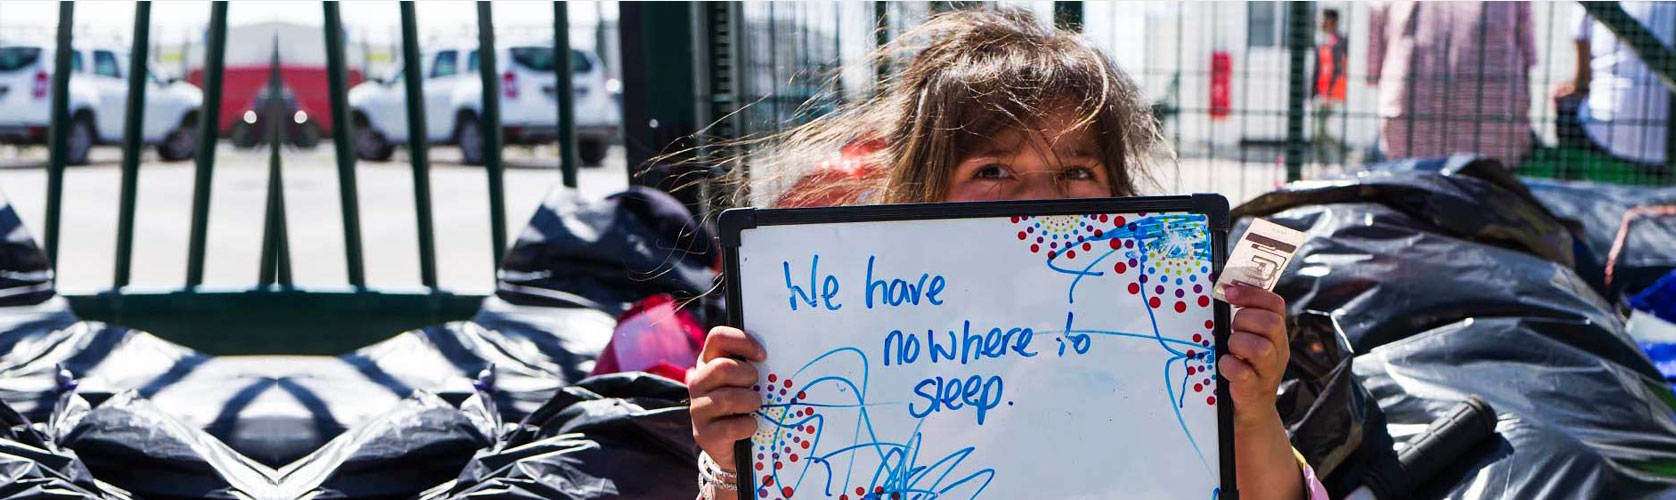 We have
nowhere to
sleep.